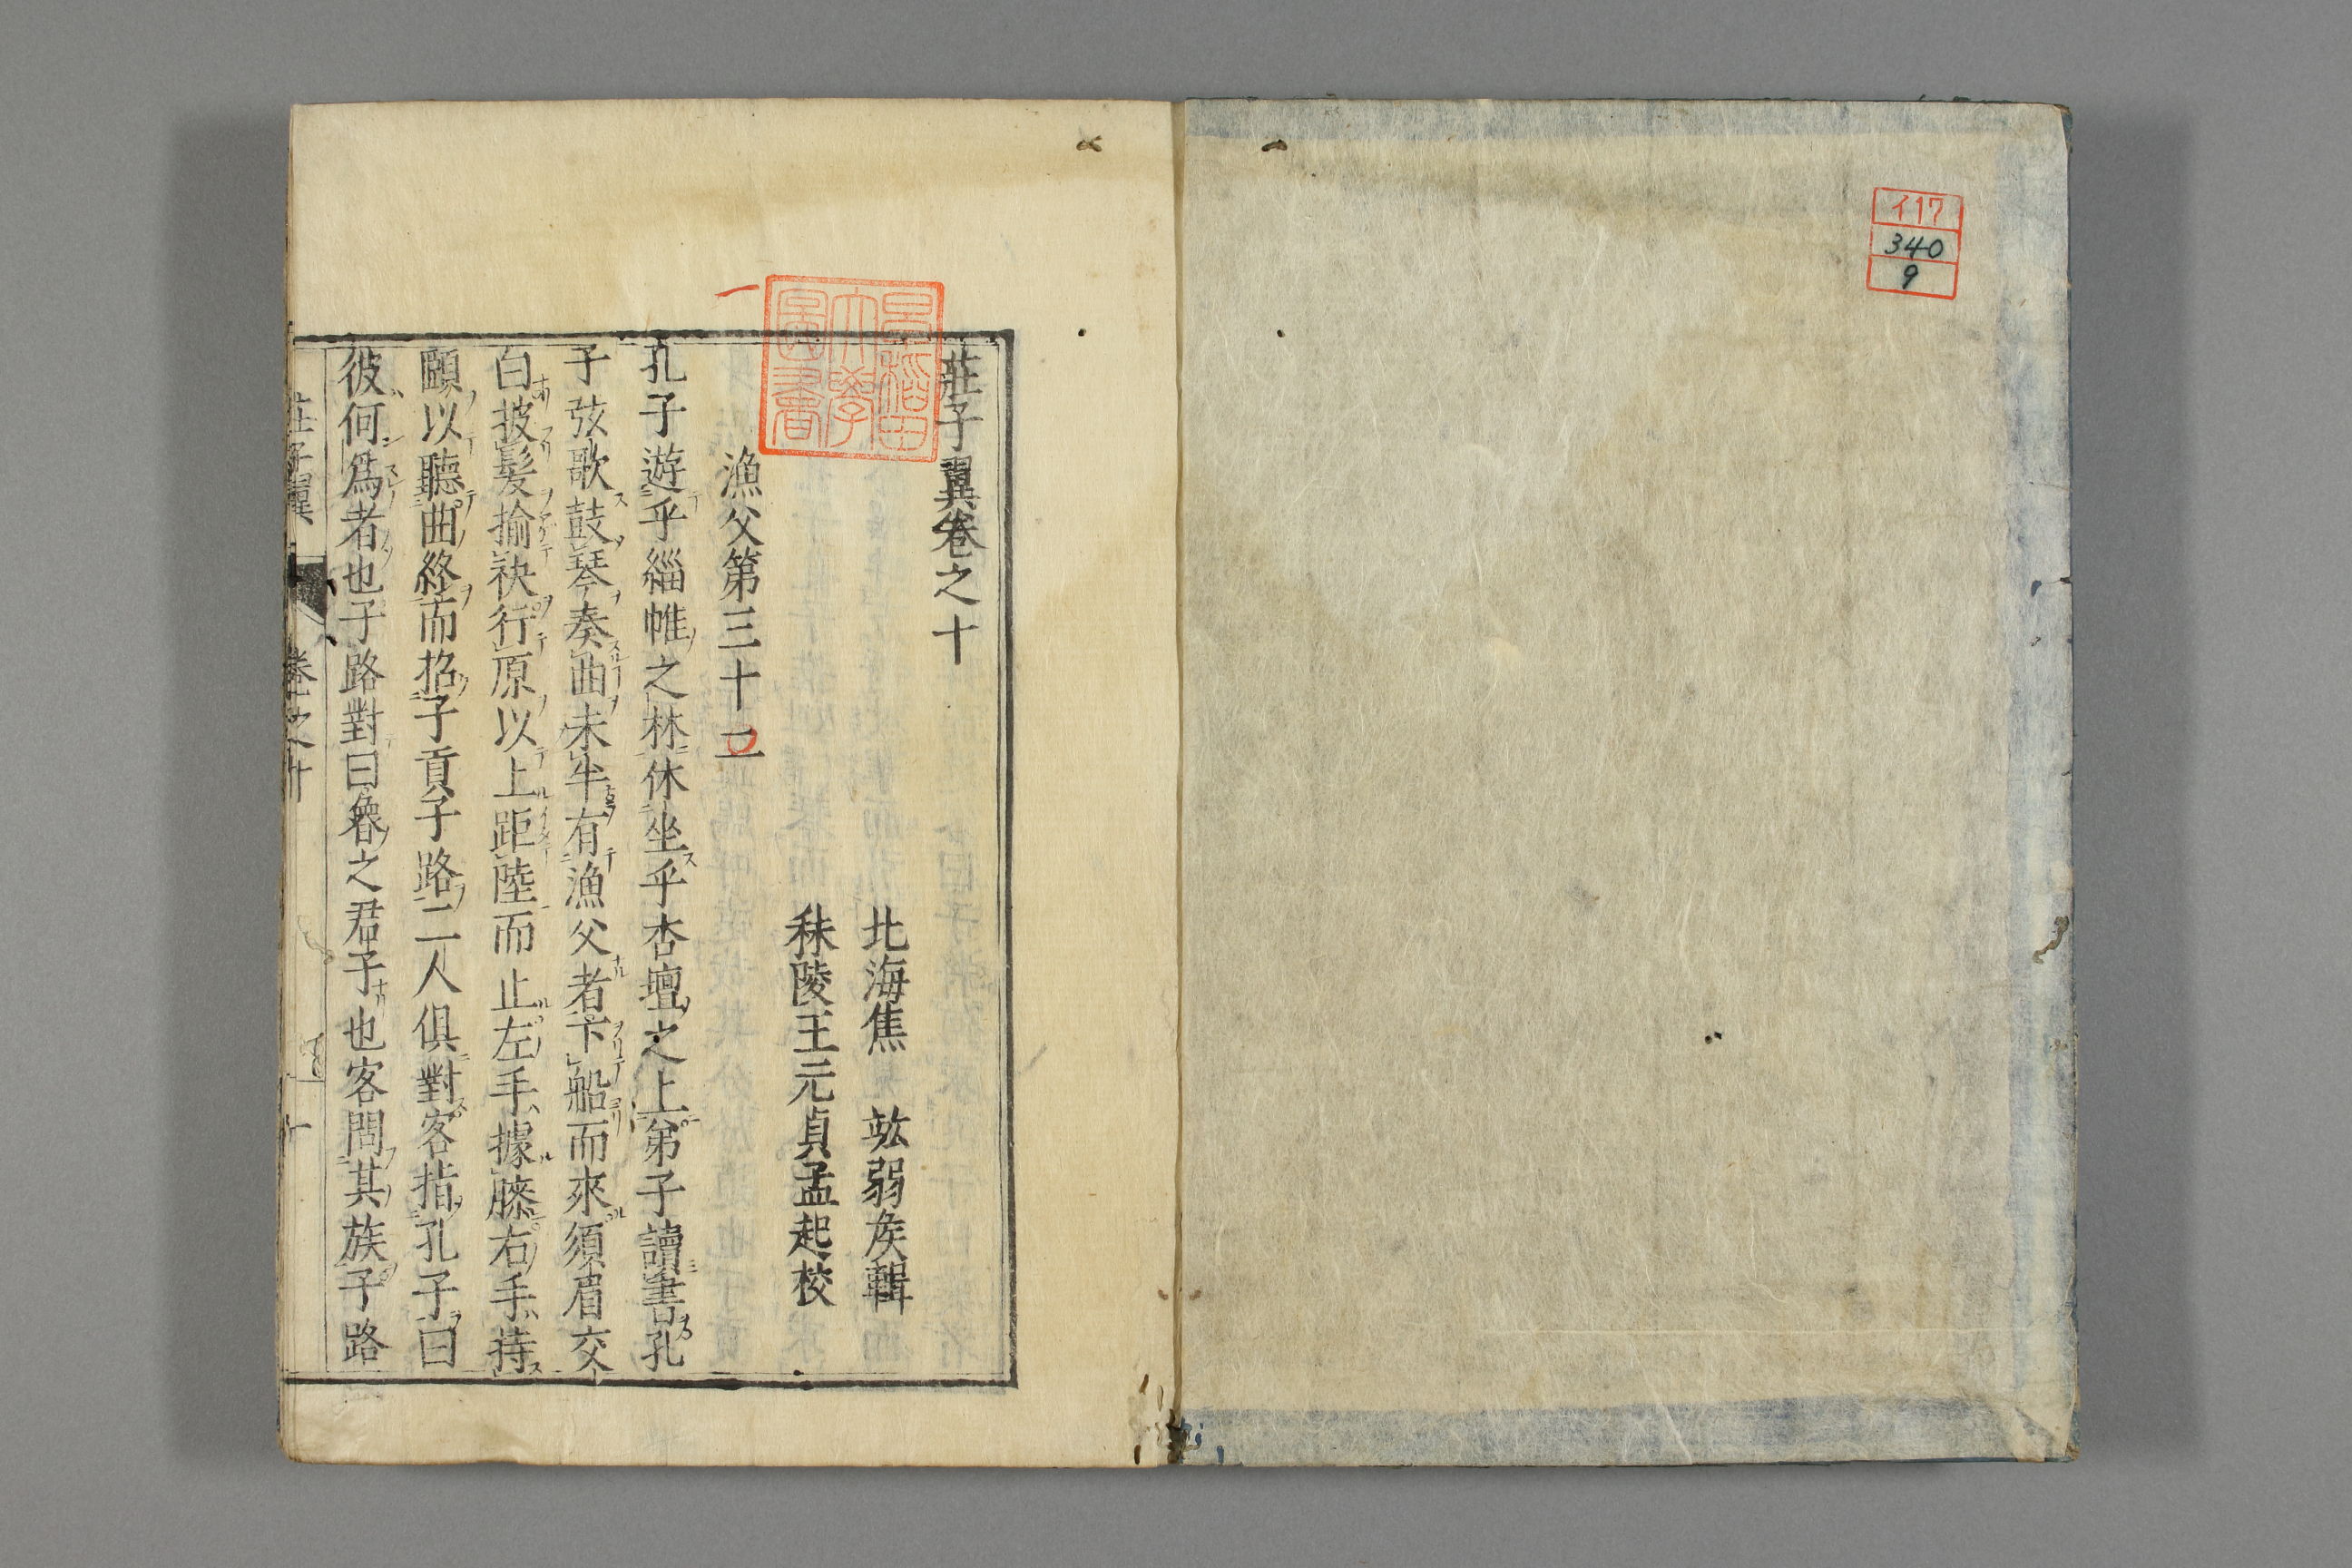 イ17
340
9
莊子翼卷之十
早稲田
大學
圖書
北海焦 竑弱矦輯
秣陵王元貞孟起校
一
漁父第三十二
孔子遊乎緇帷之林休坐乎杏壇之上弟子讀書孔
子弦歌鼓琴奏曲未半有漁父者下船而來須眉交
白披髮揄袂行原以上距陸而止左手據膝右手持
頤以聽曲終而招子貢子路二人俱對客指孔子曰
彼何爲者也子路對曰魯之君子也客問其族子路
莊子翼 卷之十